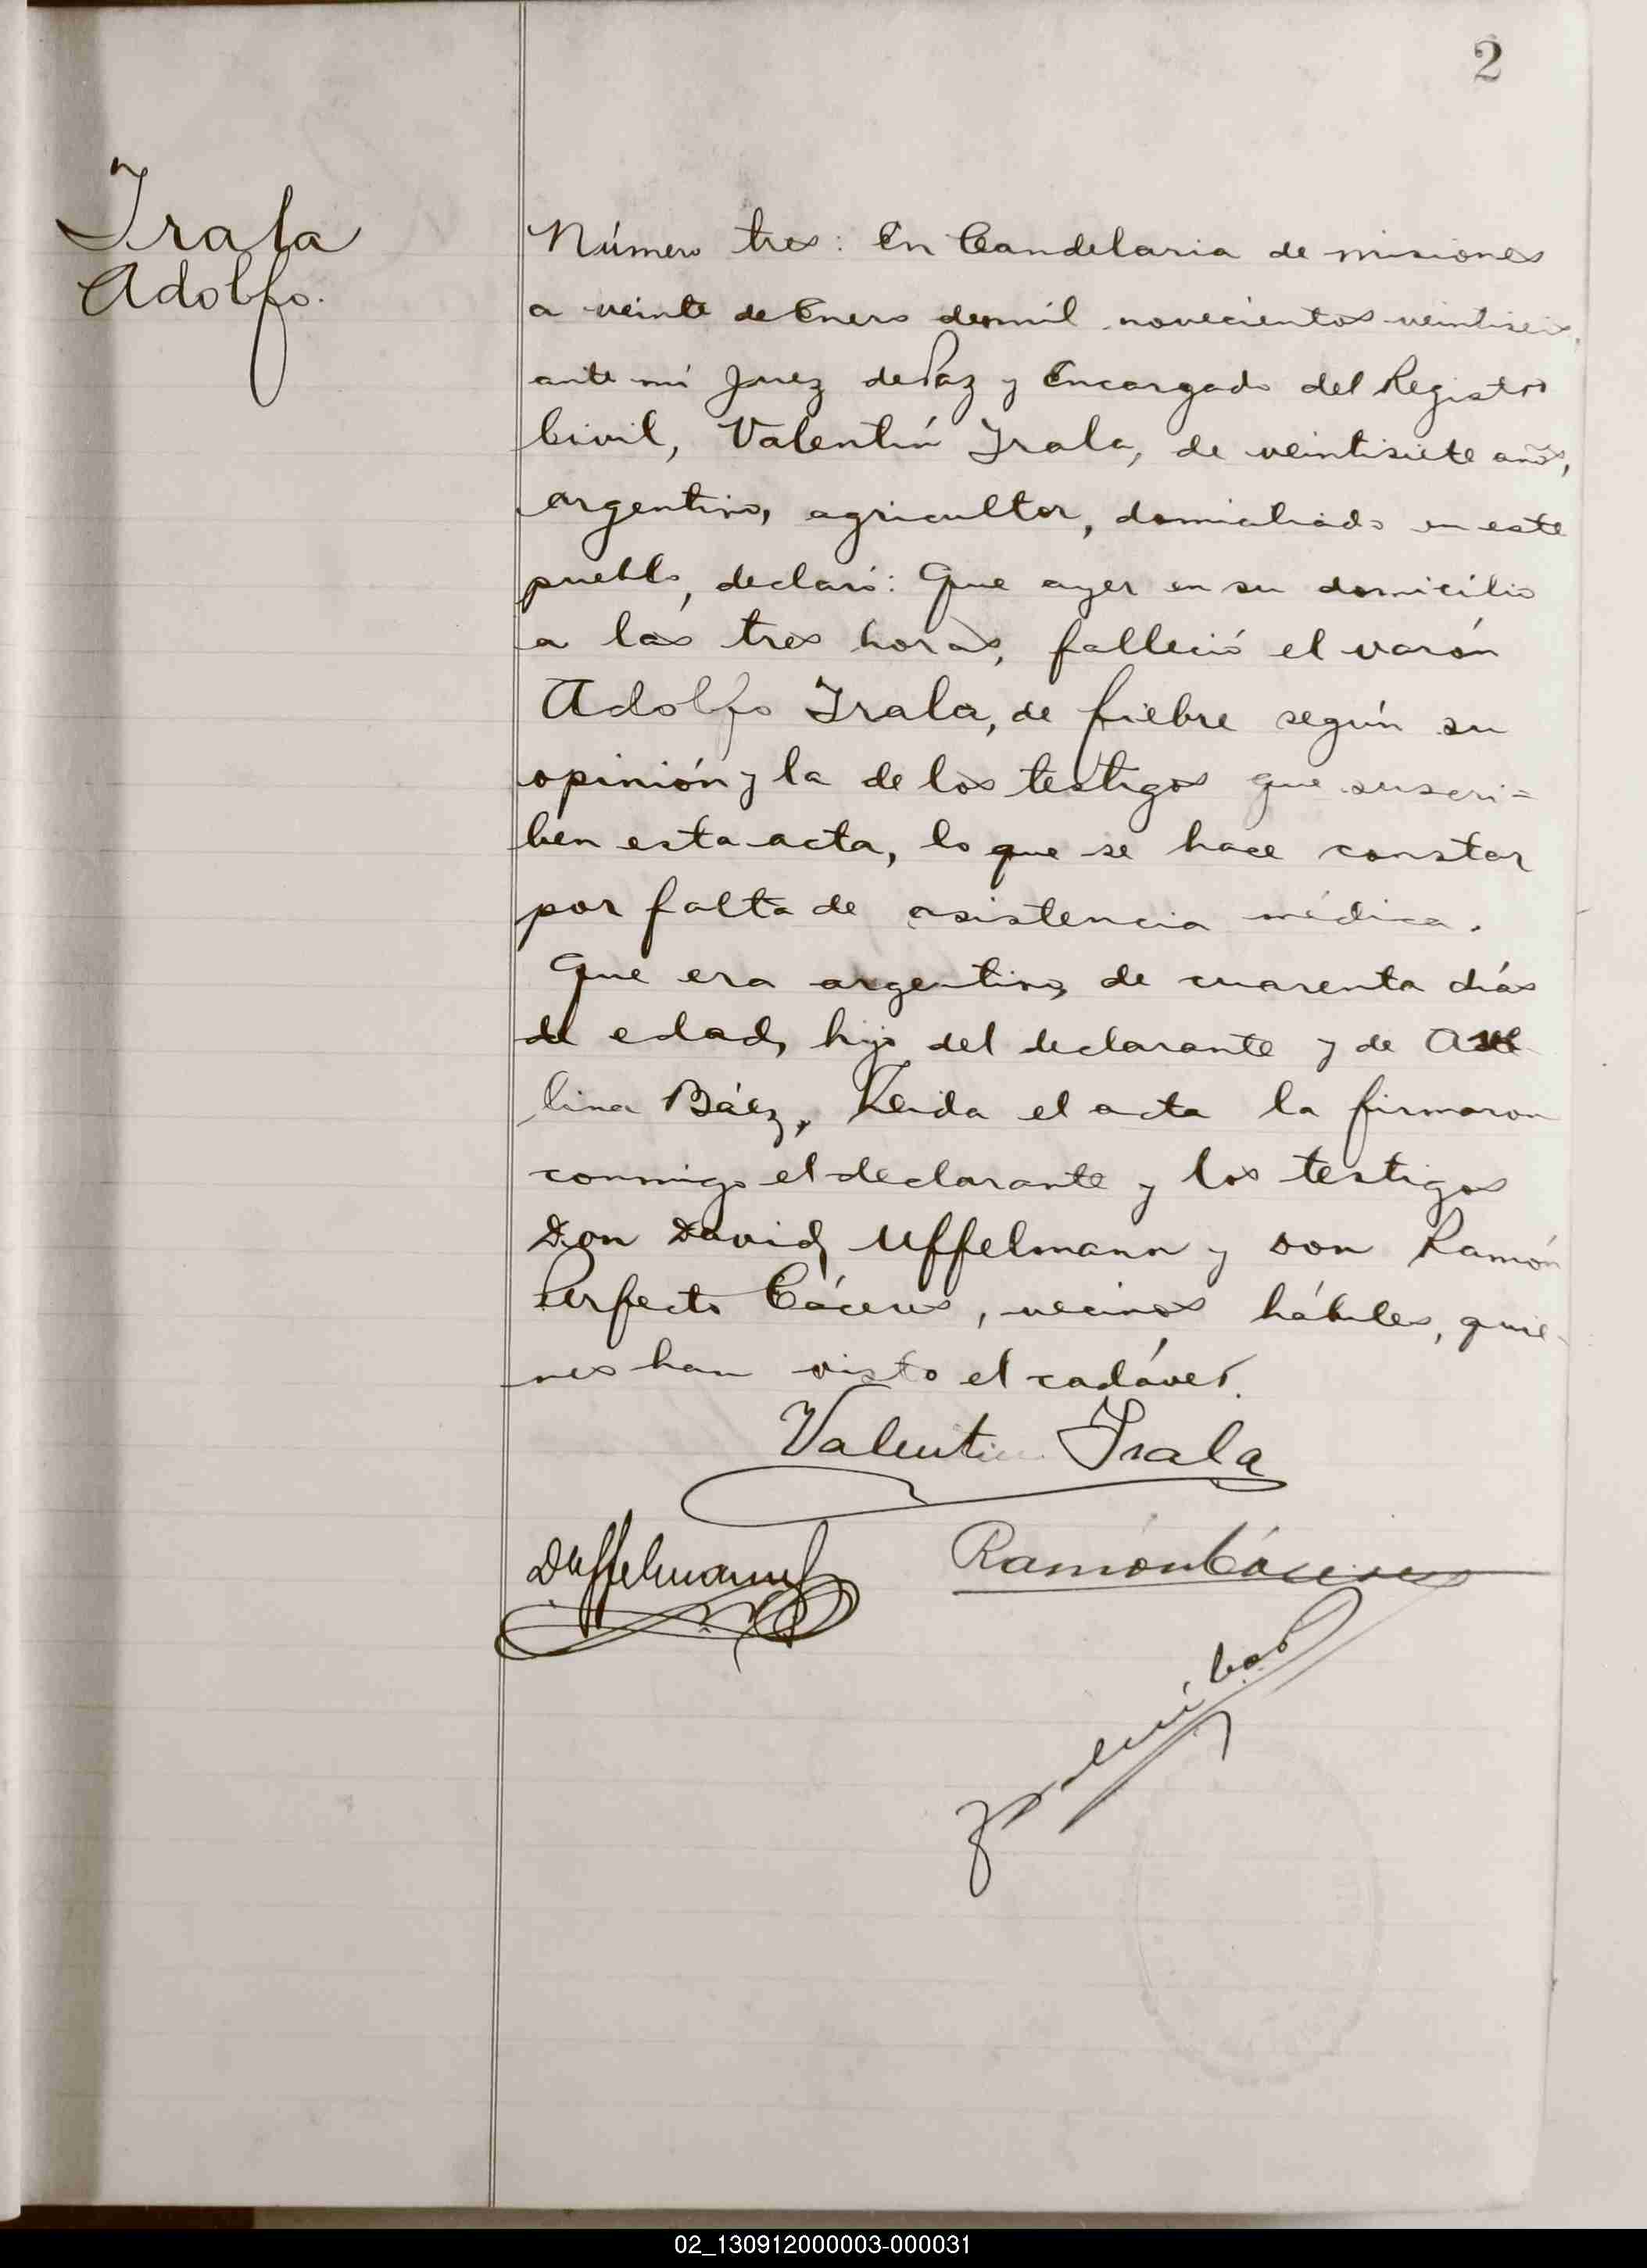 2
Irala
Adolfo.
Número tres: En Candelaria de misiones
a veinte de Enero de mil novecientos veintiseis,
ante mi Juez de Paz y Encargado del Registro
Civil, Valentín Irala, de veintisiete años,
argentino, agricultor, domiciliado en este
pueblo, declaró: Que ayer en su domicilio
a las tres horas, falleció el varón
Adolfo Irala, de fiebre según su
opinión y la de los testigos que suscri=
ben esta acta, lo que se hace constar
por falta de asistencia médica.
Que era argentino, de cuarenta días
de edad, hijo del declarante y de
lina Báez, Leida el acta la firmaron
conmigo el declarante y los testigos
Don David Uffelmann y Don Ramón
Perfecto Cáceres, vecinos hábiles, quie-
nes han visto el cadáver.
Valentin Irala
DUffelmann
Ramón Cáceres
02_130912000003-000031